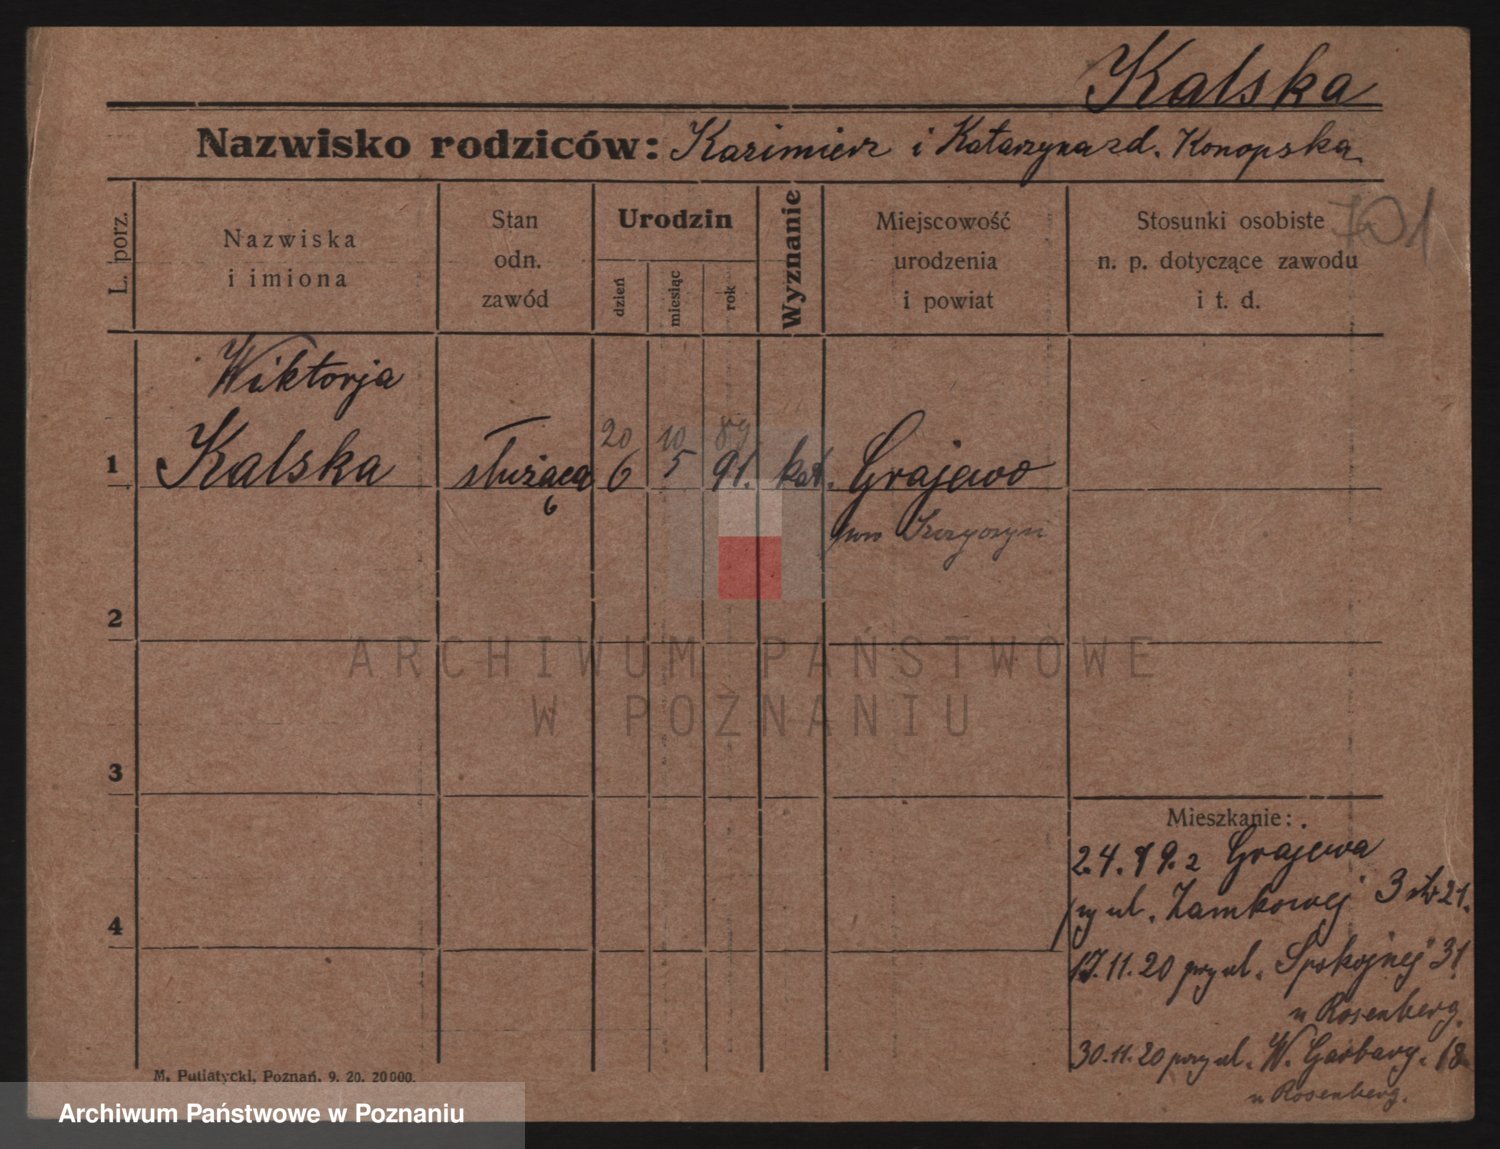 Kalska
Nazwisko rodziców: Kazimierz i Katarzyna zd. Konopska
701
L. porz.
Nazwiska
i imiona
Stan
odn.
zawód
Urodzin
dzień
miesiąc
rok
Wyznanie
Miejscowość
urodzenia
i powiat
Stosunki osobiste
n. p. dotyczące zawodu
i t. d.
Wiktorja
20 10 89
1 Kalska służąca 6 5 91. kat. Grajewo
6
pow Szczuczyn
2
ARCHIWUM PAŃSTWOWE
W POZNANIU
3
Mieszkanie:
2.4.19. z Grajewa
przy ul. Zamkowej 3 str 21.
4
17.11.20 przy ul. Spokojnej 31
u Rosenberg.
30.11.20 przy ul. W. Garbary. 18
u Rosenberg.
M. Putiatycki, Poznań. 9. 20. 20000.
Archiwum Państwowe w Poznaniu